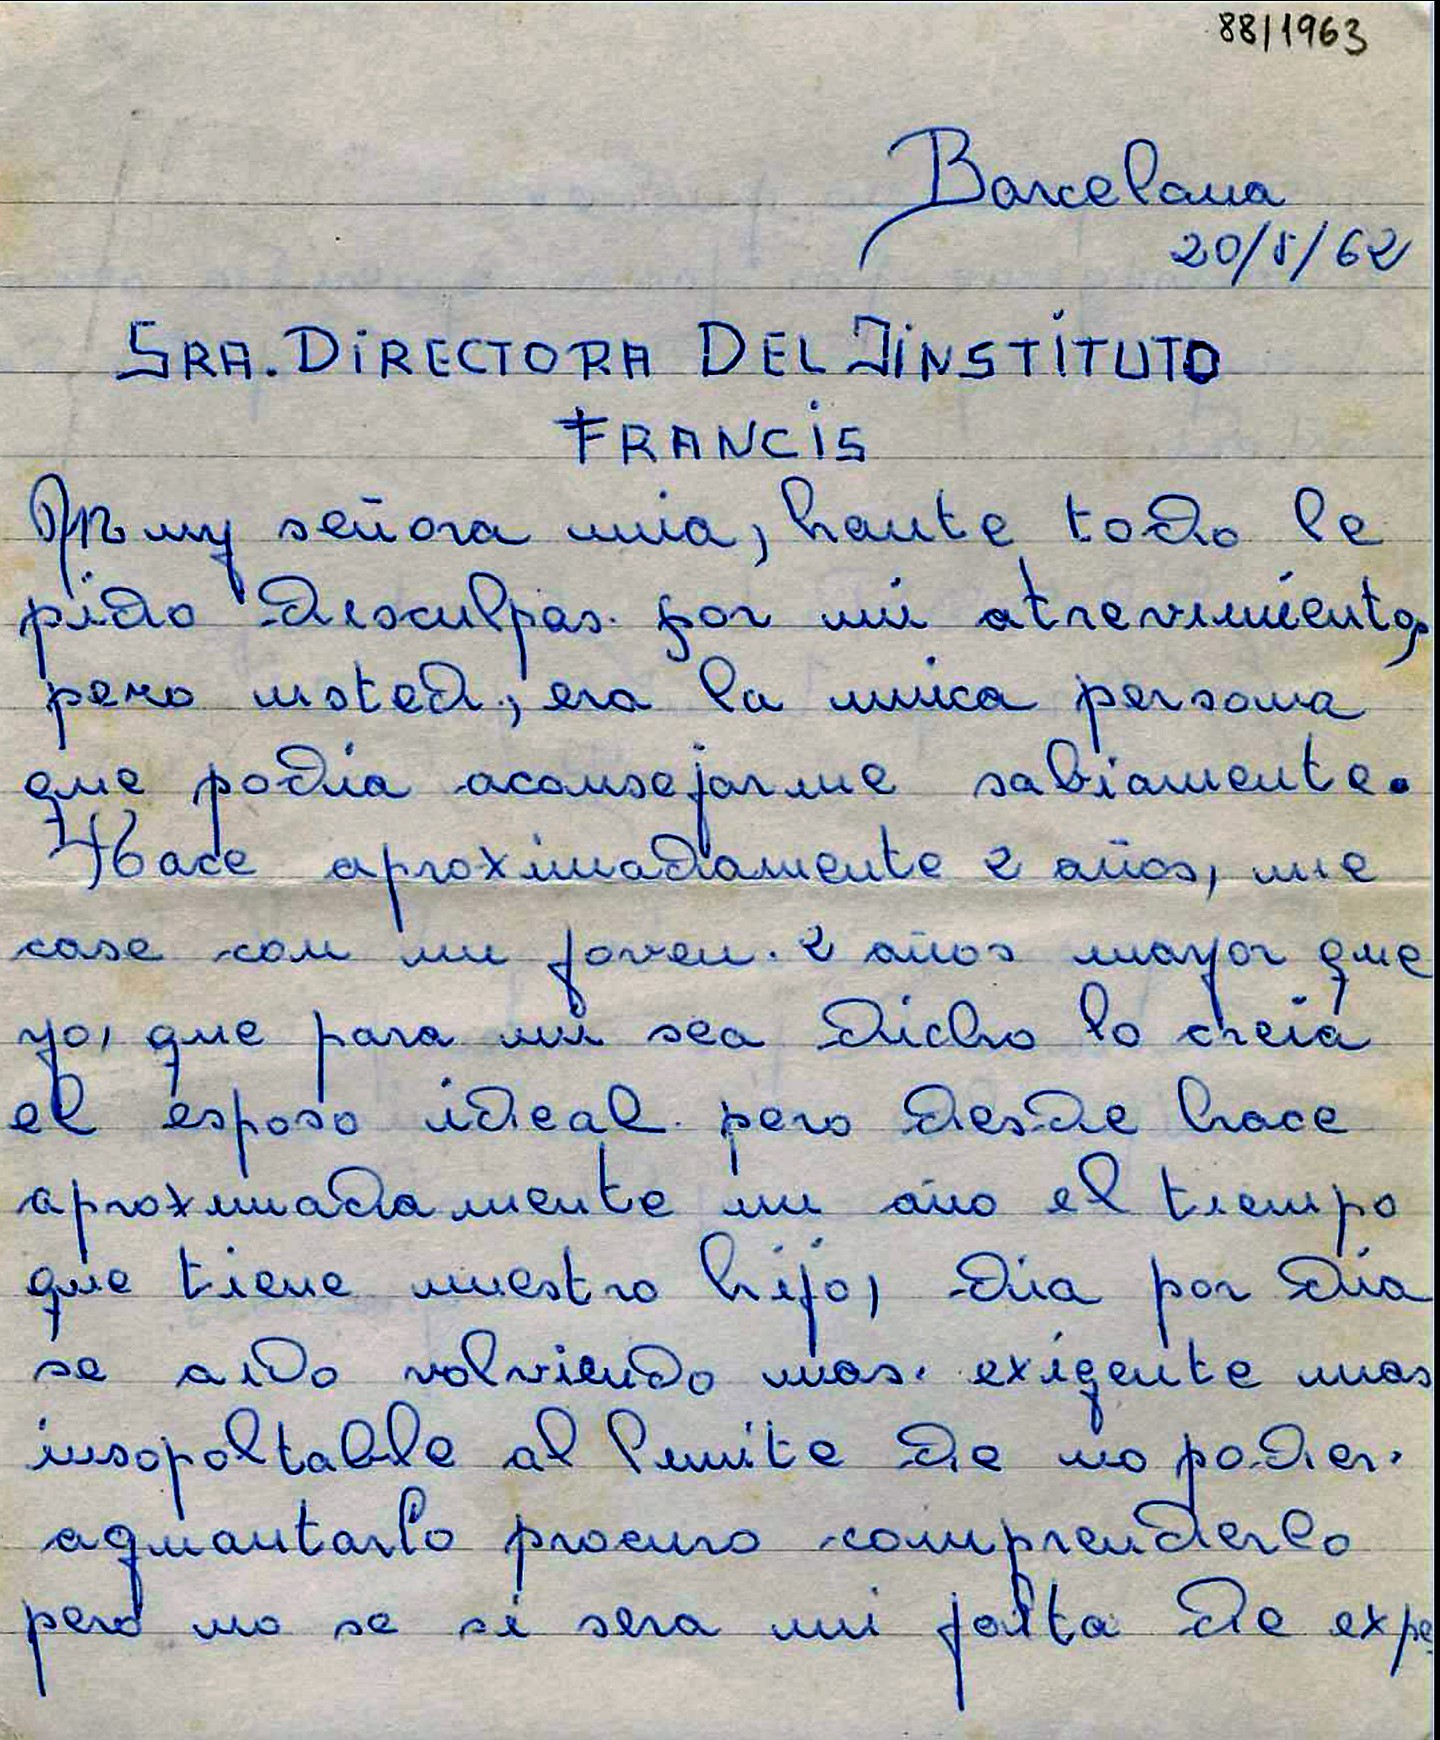 88/1963
Barcelona
20/5/62
SRA. DIRECTORA DEL INSTITUTO
FRANCIS
my señora mia, hante todo le
pido desculpas. por mi atrevimiento,
pero usted, era la unica persona
que podia aconsejarme sabiamente.
Hace aproximadamente 2 años, me
case con un joven. 2 años mayor que
yo, que para mi sea dicho lo creia
el esposo ideal. pero desde hace
aproximadamente un año el tiempo
que tiene nuestro hijo, dia por dia
se aido volviendo mas. exigente mas
insopoltable al limite de no poder.
aguantarlo procuro comprenderlo
pero no se si sera mi falta de expe